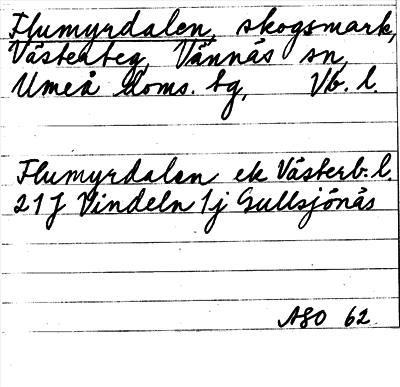 Flumyrdalen, skogsmark,
Västerteg, Vännäs sn,
Umeå doms. tg, Vb. l.
Flumyrdalen ek Västerb. l.
21J Vindeln 1j Gullsjönäs
ASO 62